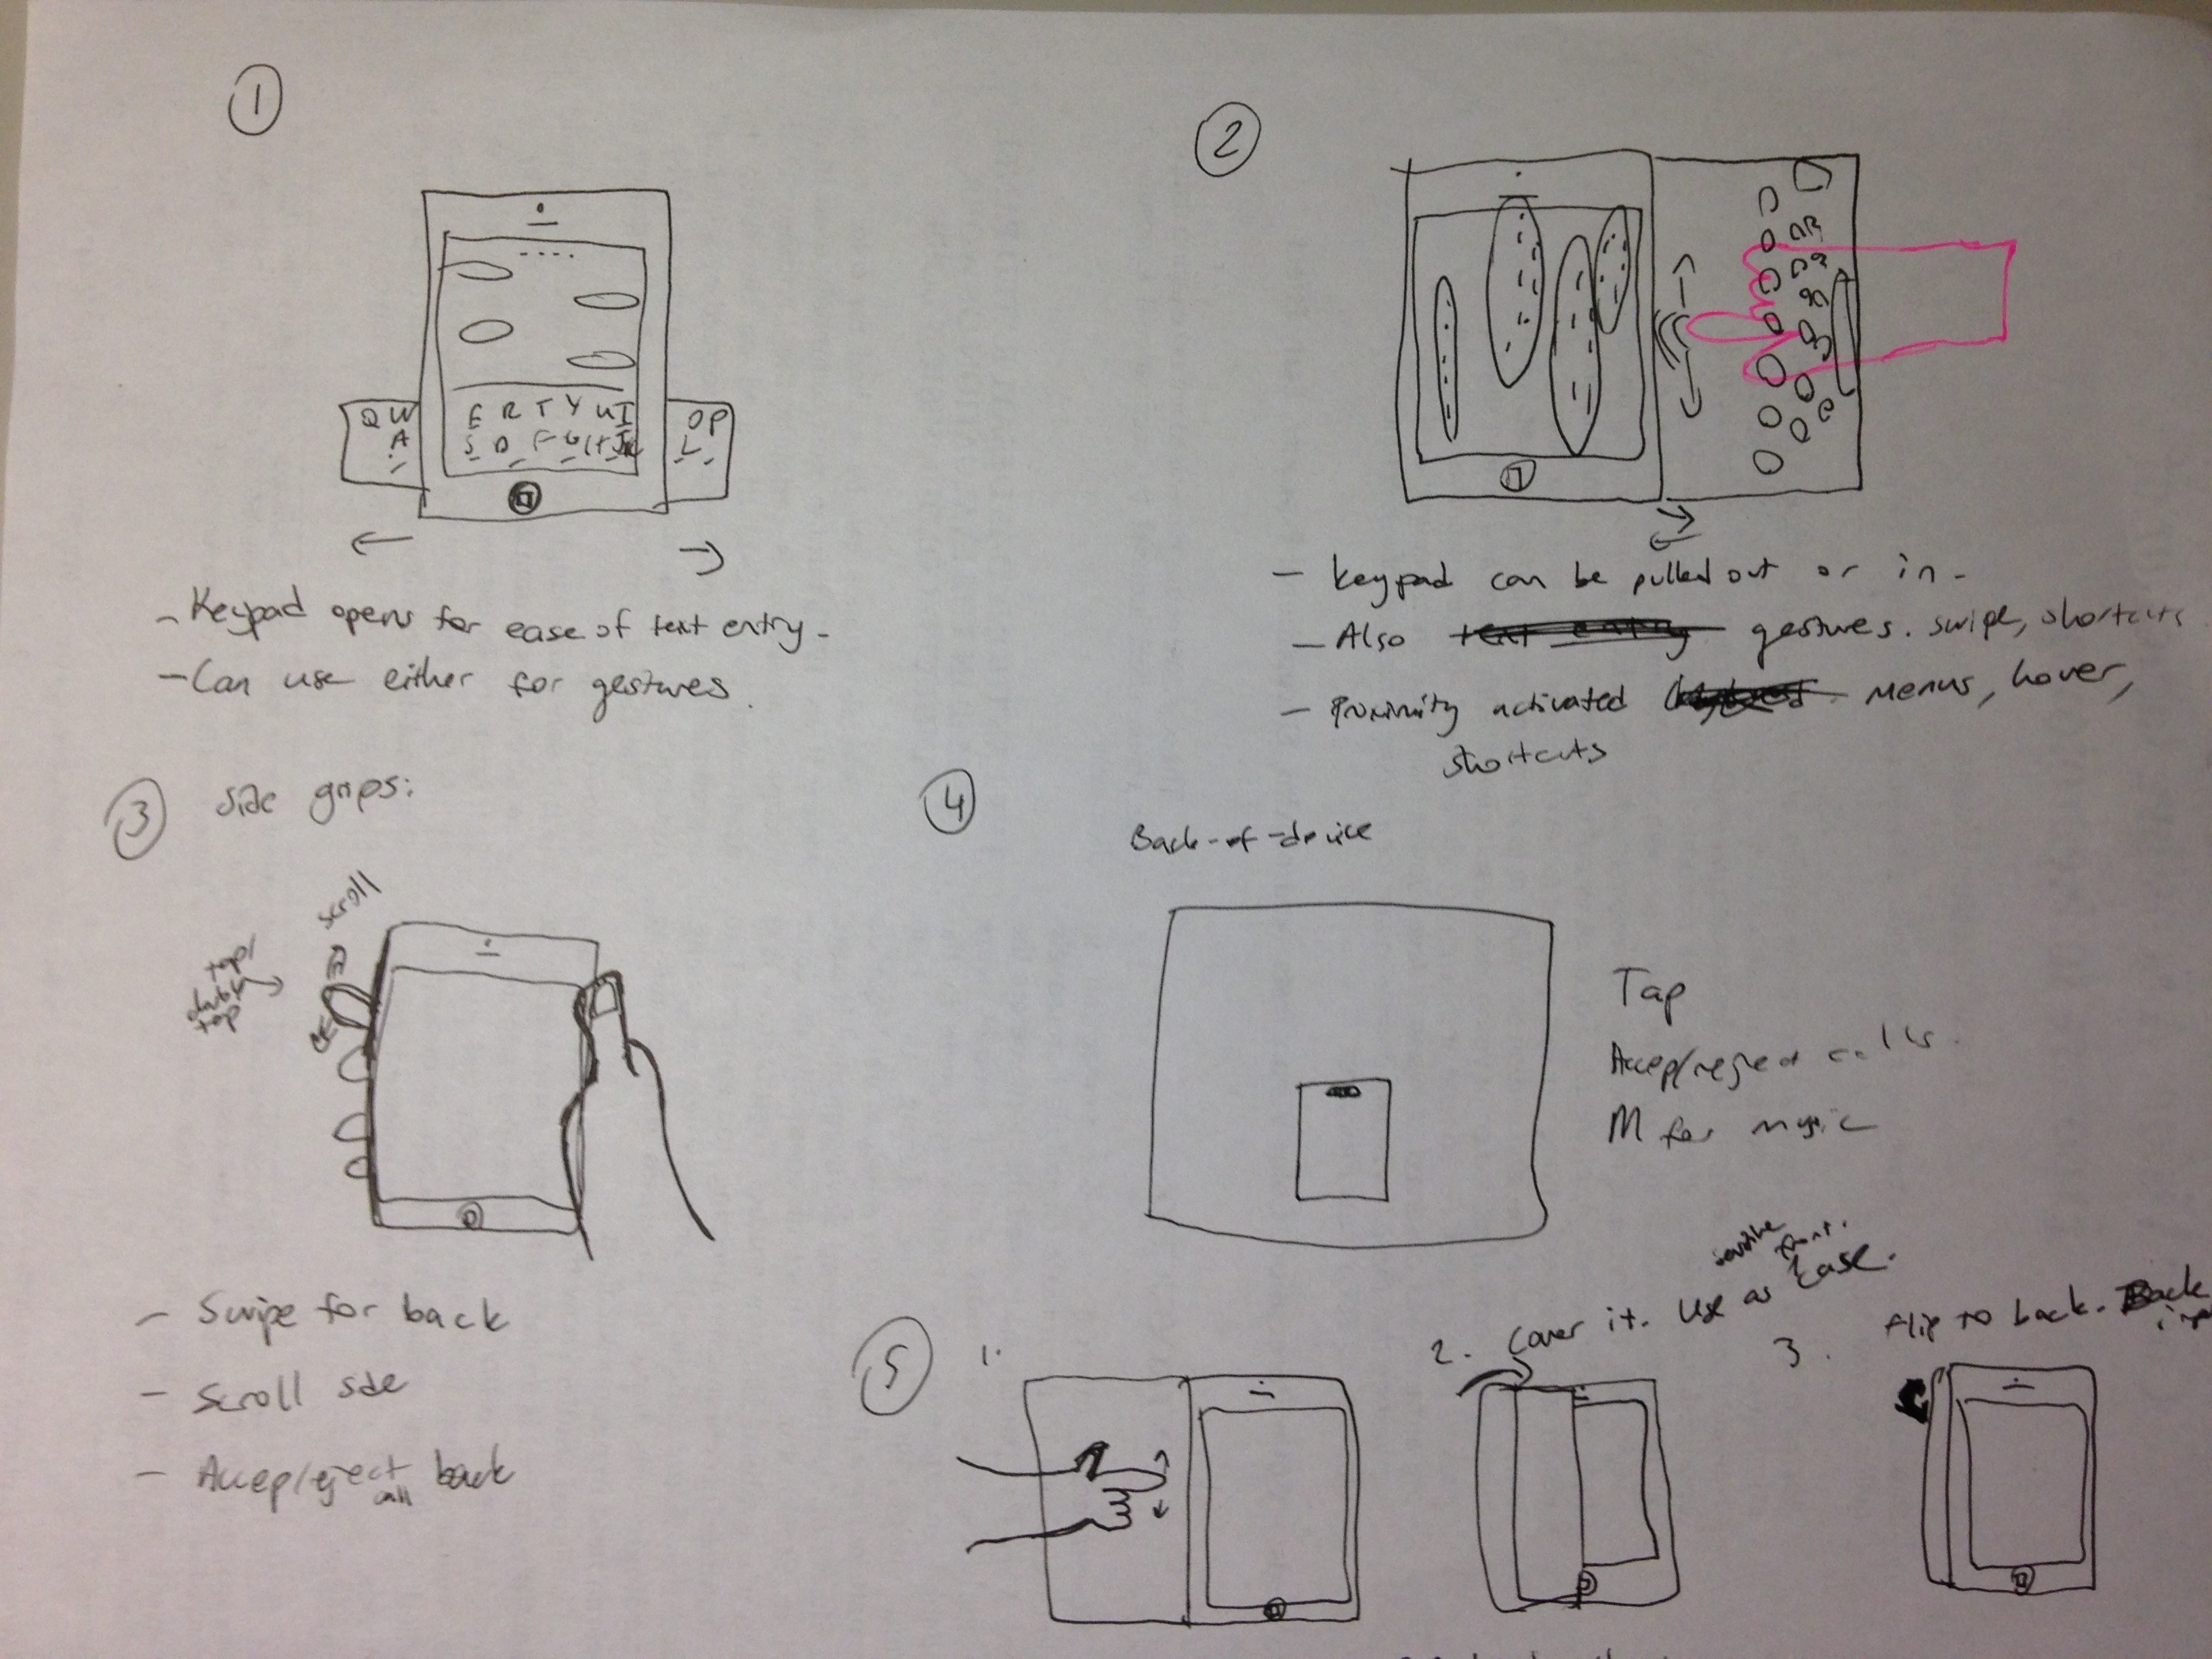 1
Q W E R T Y U I O P
A S D F G H J K L
- Keypad opens for ease of text entry.
- Can use either for gestures.
2
- Keypad can be pulled out or in.
- Also text entry gestures. swipe, shortcuts
- Proximity activated menus, hover,
shortcuts
3 Side grips:
scroll
tap/
double
tap
- Swipe for back
- Scroll side
- Accep/reject back
call
4
Back-of-device
Tap
Accep/reject calls.
M for music
5
1.
2. Cover it. Use as Case.
sensitive
front.
3. Flip to back. Back